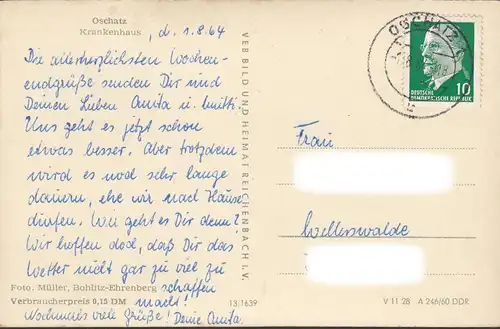 Oschatz
Krankenhaus
, d. 1.8.64
Die allerherzlichsten Wochen-
endgrüße senden Dir und
Deinen Lieben Anita u. Mutti.
Uns geht es jetzt schon
etwas besser. Aber trotzdem
wird es noch sehr lange
dauern, ehe wir nach Hause
dürfen. Wie geht es Dir denn?
Wir hoffen doch, daß Dir das
Wetter nicht gar zu viel zu
schaffen
macht!
Nochmals viele Grüße! Deine Anita.
Foto. Müller, Bohlitz-Ehrenberg
Verbraucherpreis 0,15 DM
13 1639
VEB BILD UND HEIMAT REICHENBACH I. V.
OSCHATZ
10
DEUTSCHE
DEMOKRATISCHE REPUBLIK
Frau
Wellerswalde
V 11 28 A 246/60 DDR